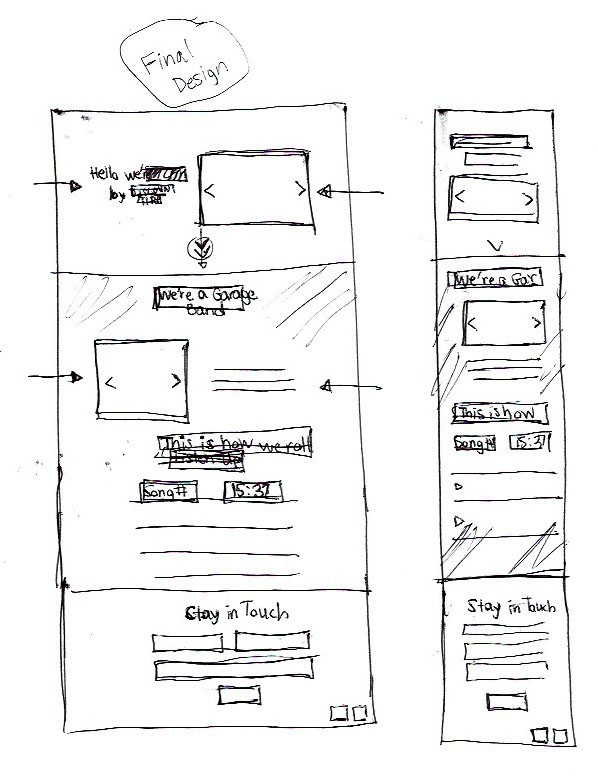 Final
Design
Hello we're
by
We're a Garage
Band
This is how we roll
Listen up
Song#
15:37
Stay in Touch
We're a Gar
This is how
Song#
15:37
Stay in Touch